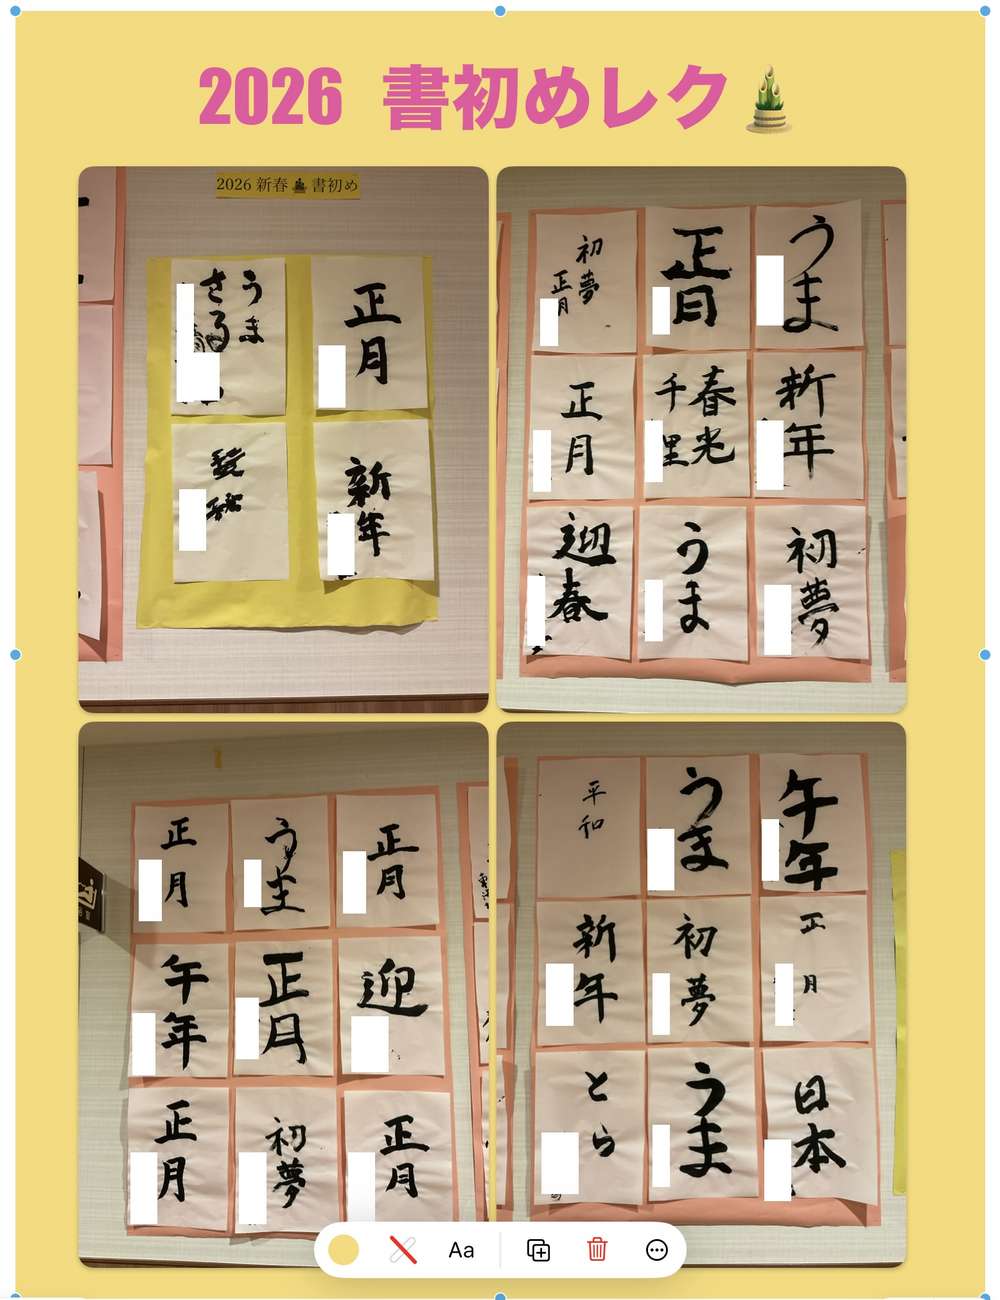 2026 書初めレク
2026 新春 書初め
正月
うま
さる
新年
うま
正月
初夢
正月
新年
春光
千里
正月
初夢
うま
迎春
正月
うま
正月
迎
正月
午年
正月
初夢
正月
午年
うま
平和
正月
初夢
新年
日本
うま
とら
Aa